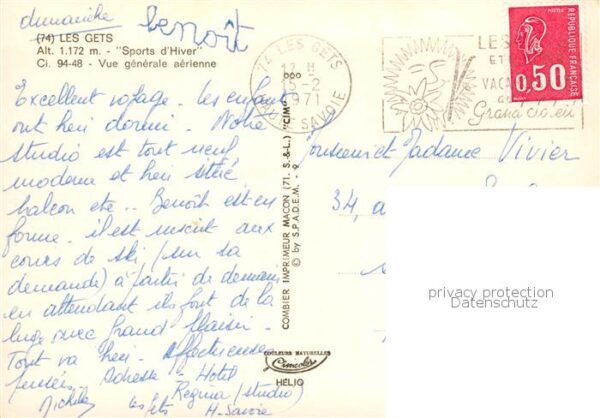 dimanche
benoît
(74) LES GETS
Alt. 1.172 m. - "Sports d'Hiver"
Ci. 94-48 - Vue générale aérienne
Excellent voyage. les enfants
ont bien dormi. Notre
studio est tout neuf
moderne et bien situé
balcon etc.. Benoît est en
forme. il est inscrit aux
cours de ski (sur sa
demande) à partir de demain
en attendant ils font de la
luge avec grand plaisir.
Tout va bien. Affectueuses
pensées. Adresse - Hotel
Regina (studio)
Michèle les Gets H-Savoie
74 LES GETS
17 H
-2
1971
HAUTE SAVOIE
LES
ET
VACA
Grand ciel bleu
POSTES
RÉPUBLIQUE FRANÇAISE
0,50
Monsieur et Madame Vivier
34,
COMBIER IMPRIMEUR MACON (71. S.-&-L.) "CIM"
© by S.P.A.D.E.M. - 9
COULEURS NATURELLES
Cimcolor
HÉLIO
privacy protection
Datenschutz